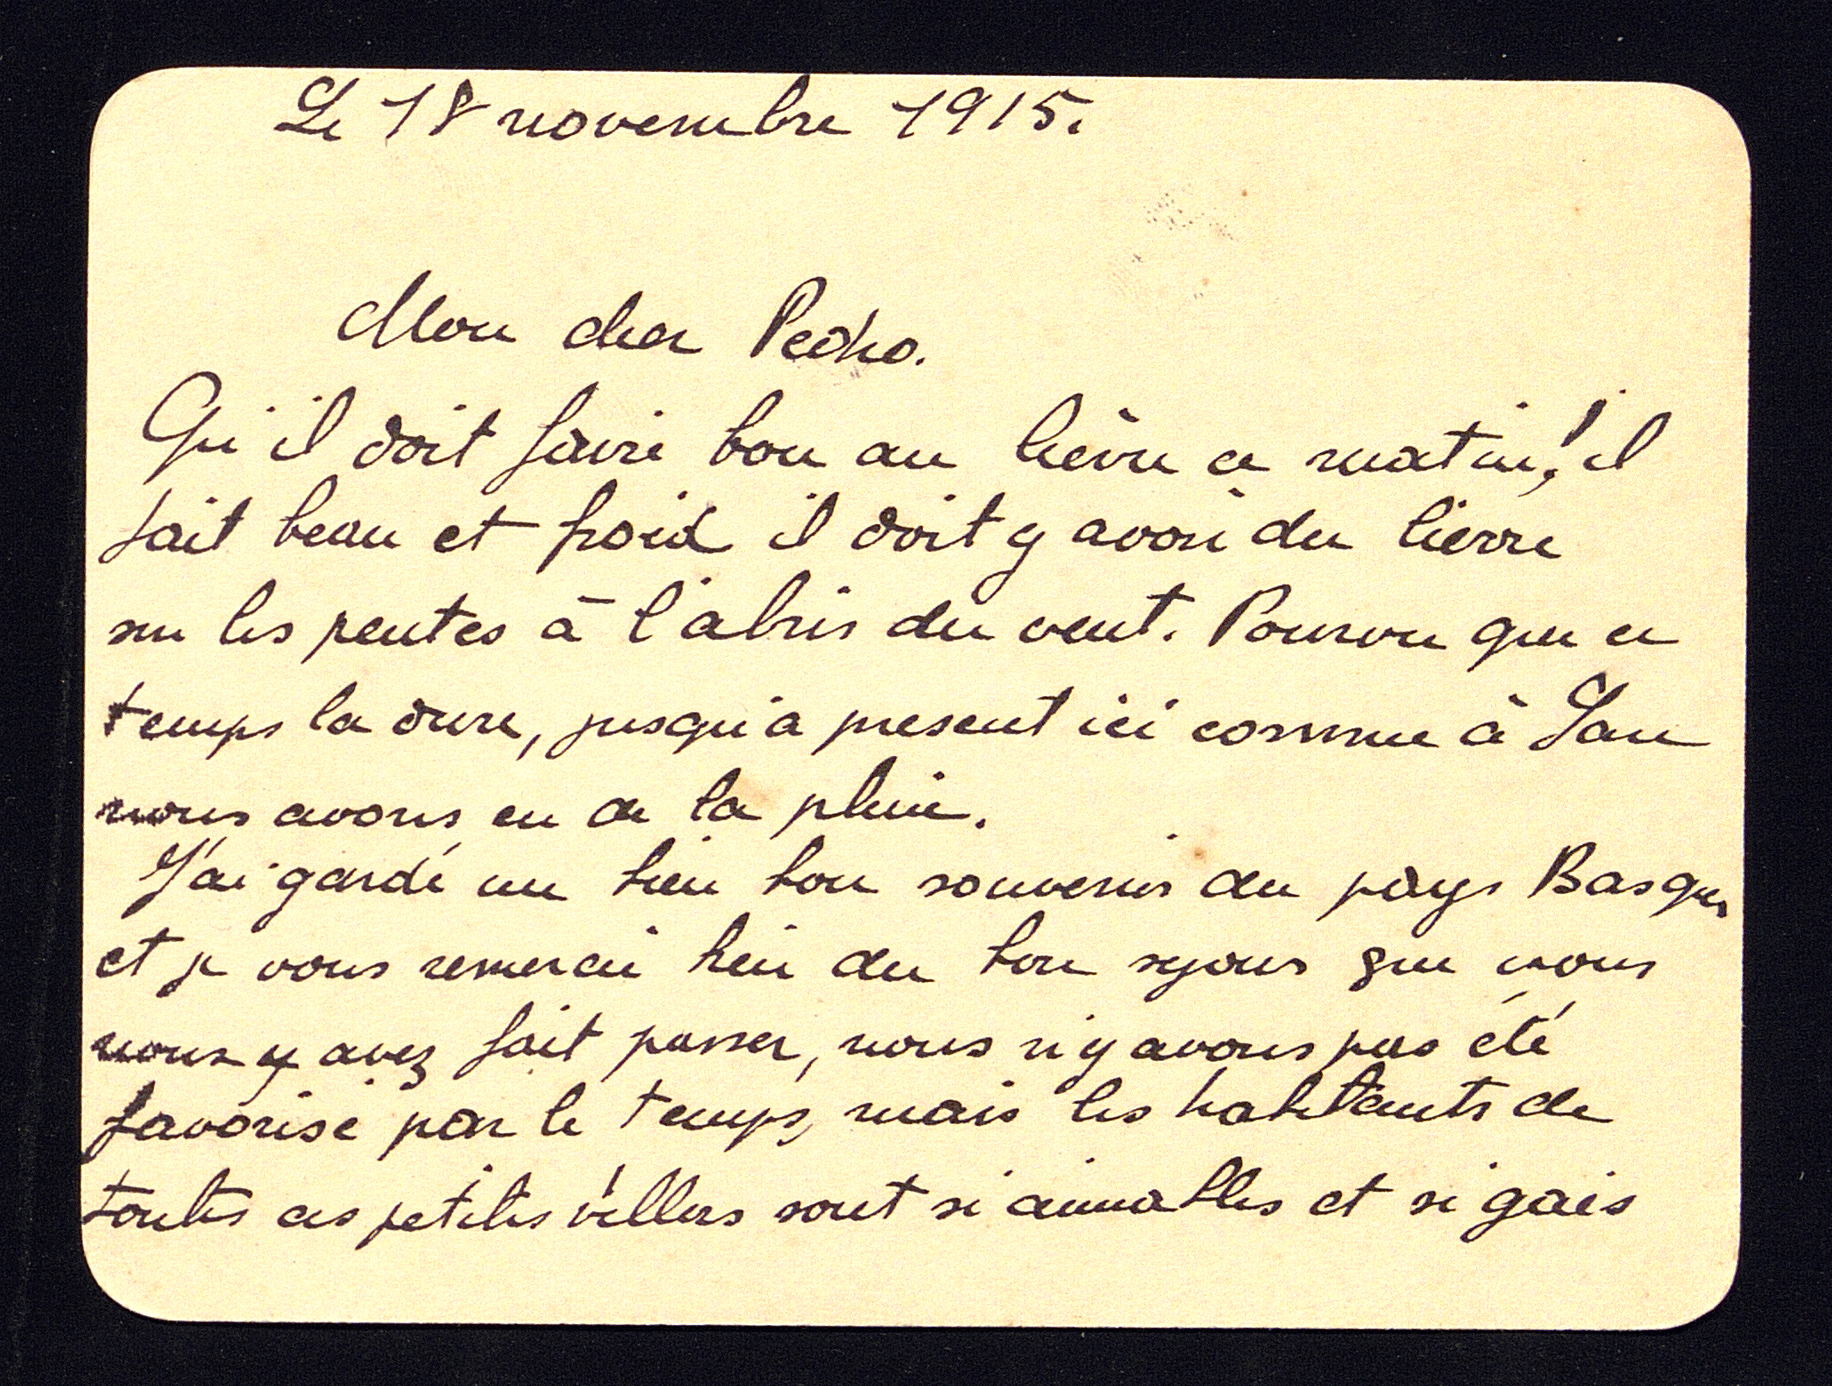 Le 18 novembre 1915.
Mon cher Pedro.
Qu'il doit faire bon au lièvre ce matin! il
fait beau et froid il doit y avoir du lievre
sur les pentes à l'abris du vent. Pourvu que ce
temps la dure, jusqu'a present ici comme à Pau
nous avons eu de la pluie.
J'ai gardé un bien bon souvenir du pays Basque
et je vous remercie bien du bon sejour que vous
nous y avez fait passer, nous n'y avons pas été
favorisé par le temps, mais les habitants de
toutes ces petites villers sont si aimables et si gais